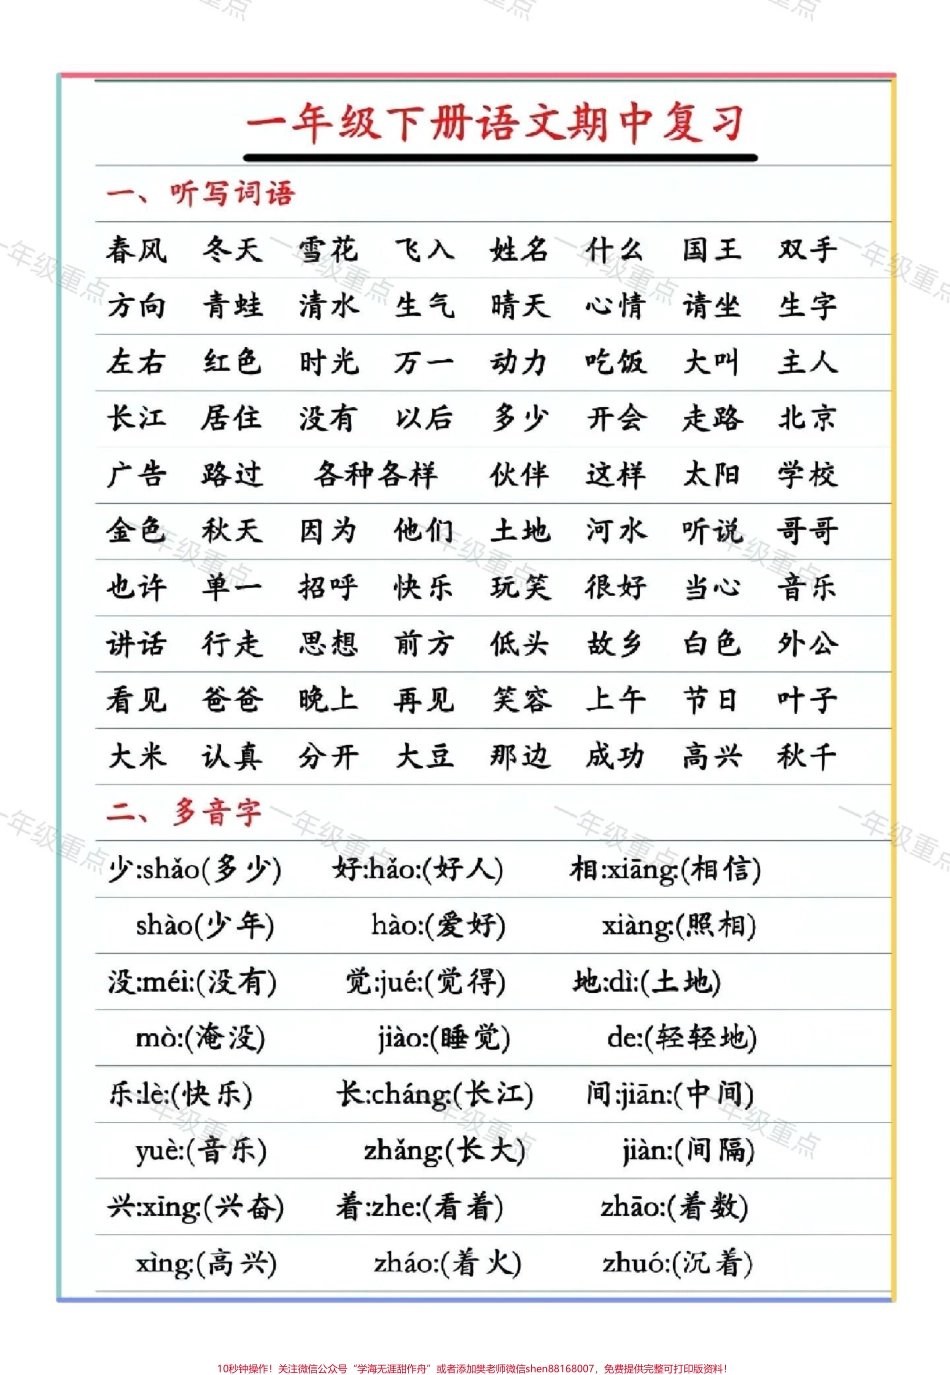 一年级下册语文期中复习
一、听写词语
春风 冬天 雪花 飞入 姓名 什么 国王 双手
方向 青蛙 清水 生气 晴天 心情 请坐 生字
左右 红色 时光 万一 动力 吃饭 大叫 主人
长江 居住 没有 以后 多少 开会 走路 北京
广告 路过 各种各样 伙伴 这样 太阳 学校
金色 秋天 因为 他们 土地 河水 听说 哥哥
也许 单一 招呼 快乐 玩笑 很好 当心 音乐
讲话 行走 思想 前方 低头 故乡 白色 外公
看见 爸爸 晚上 再见 笑容 上午 节日 叶子
大米 认真 分开 大豆 那边 成功 高兴 秋千
二、多音字
少:shǎo(多少) 好:hǎo:(好人) 相:xiāng:(相信)
shào(少年) hào:(爱好) xiàng:(照相)
没:méi:(没有) 觉:jué:(觉得) 地:dì:(土地)
mò:(淹没) jiào:(睡觉) de:(轻轻地)
乐:lè:(快乐) 长:cháng:(长江) 间:jiān:(中间)
yuè:(音乐) zhǎng:(长大) jiàn:(间隔)
兴:xīng:(兴奋) 着:zhe:(看着) zhāo:(着数)
xìng:(高兴) zháo:(着火) zhuó:(沉着)
10秒钟操作！关注微信公众号“学海无涯甜作舟”或者添加樊老师微信shen88168007，免费提供完整可打印版资料！